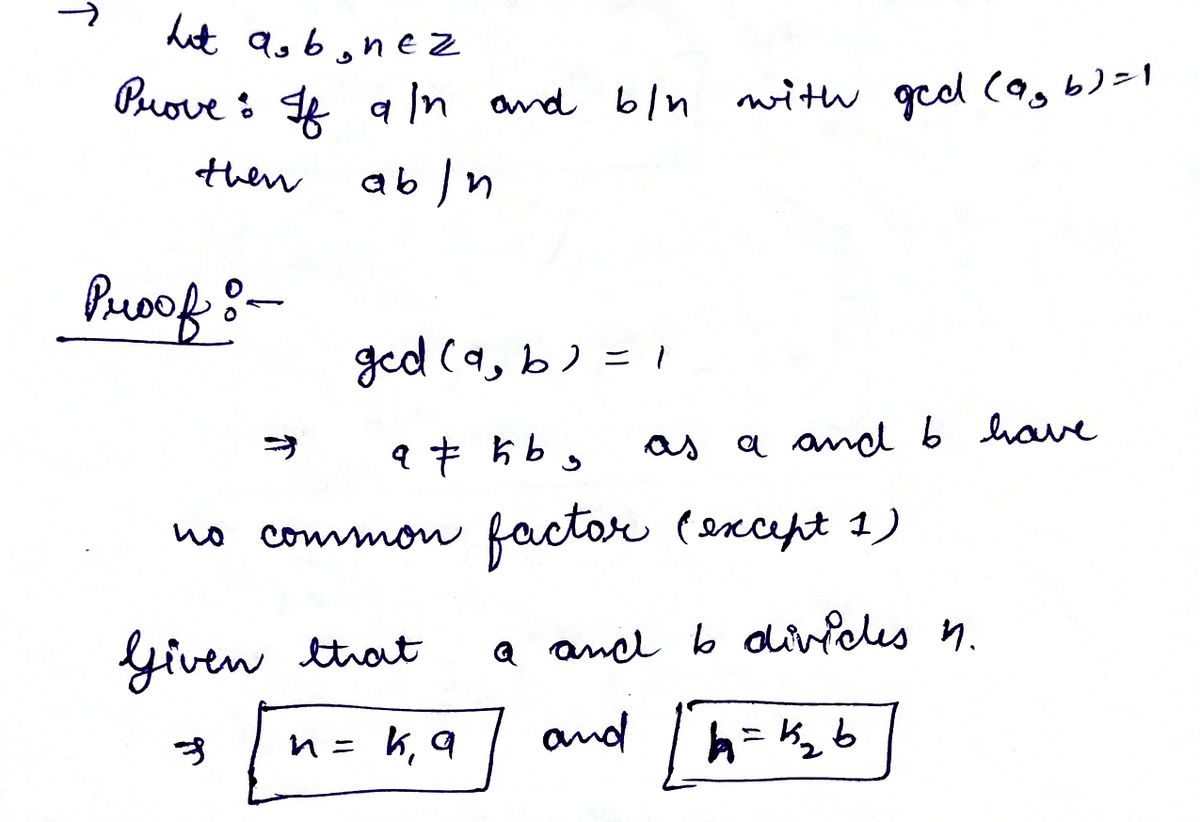 → Let a, b, n ∈ Z
Prove : If a/n and b/n with gcd (a, b) = 1
then ab/n
Proof :-
gcd (a, b) = 1
⇒ a ≠ kb, as a and b have
no common factor (except 1)
Given that a and b divides n.
⇒ n = k₁a and n = k₂b